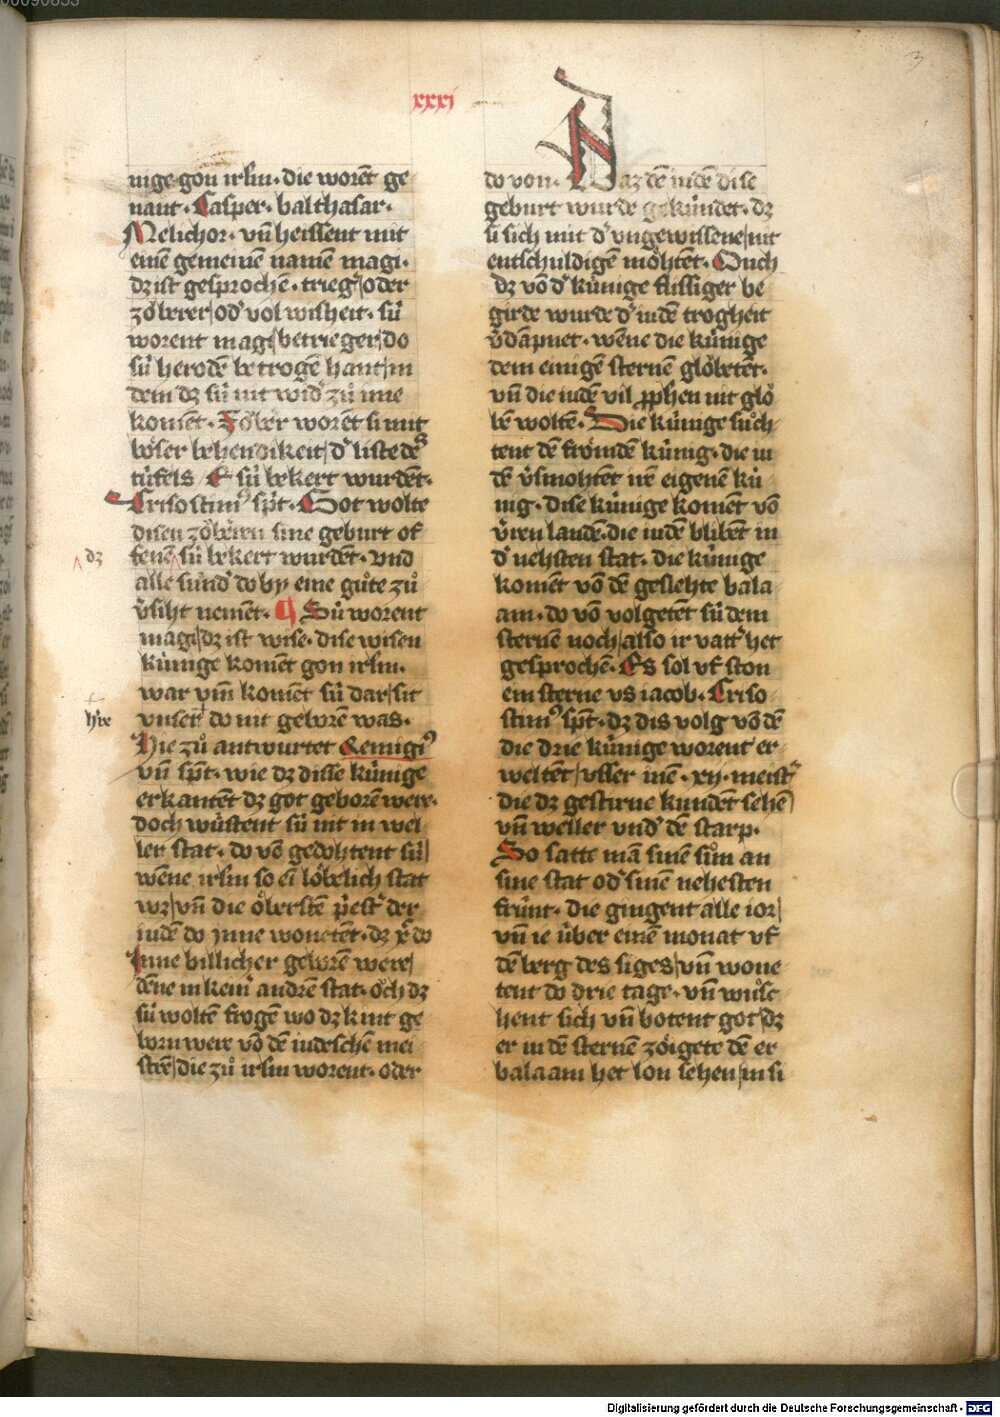 00090853
3
xxxi
nige gōn irlm · die worēt ge
nant · Casper · balthasar ·
Melichor · vn̄ heissent mit
einē gemeinē namē magi ·
dz ist gesprochē · trieg᷒ / oder
zöberer / od᷒ vol wisheit · sú
worent magi / betrieger / do
sú herodē betrogē hant / in
dem dz sú nit wid᷒ zů ime
komēt · Zöber worēt si mit
böser behendikeit / d᷒ liste des
túfels / E sú bekert wurdēt ·
Crisostim᷒ sp̄t · Got wolte
disen zöbērn sine geburt of
fenē sú bekert wurdēt · vnd
dz
alle súnd᷒ do by eine gůte zů
v᷒siht nemēt · ¶ Sú worent
magi / dz ist wise · dise wisen
kúnige komēt gon irlm ·
war vm̄ komēt sú dar / sit
vnser do nit geborē was ·
h᷒re
Hie zů antwurtet Remigi᷒
vn̄ sp̄t · wie dz disse kúnige
erkantēt dz got geborē were ·
doch wústent sú nit in wel
ler stat · do vō gedohtent sú /
wēne irlm so ei᷒ löbelich stat
wz / vn̄ die öberstē p᷒est᷒ der
iudē do jnne wonetēt · dz x᷒ do
Inne billicher geborē were /
dēne in kein᷒ andrē stat · öch dz
sú woltē frogē wo dz kint ge
born were vō dē iudeschē mei
strē / die zů irlm worent · oder
do von · Waz dē iudē dise
geburt wurde gekúndet · dz
si sich mit d᷒ vngewissene / nit
entschuldigē möhtēt · Ouch
dz vō d᷒ kúnige flissiger be
girde wurde d᷒ iudē trogheit
v᷒dāpnet · wēne die kúnige
dem einigē sternē glöbetēt ·
vn̄ die iudē vil ꝓphen nit glö
bē woltē · Die kúnige sůch
tent dē frömdē kúnig · die iu
dē v᷒smohtēt irē eigenē kú
nig · dise kúnige komēt vō
v᷒ren landē · die iudē blibēt in
d᷒ nehsten stat · die kúnige
komēt vō dē geslehte bala
am · do vō volgetēt sú dem
sternē noch / also ir vatt᷒ het
gesprochē · Es sol vf ston
ein sterne vs iacob · Criso
stim᷒ sp̄t · dz dis volg vō dē
die drie kúnige worent er
weltēt / vsser inē · xij · meist᷒
die dz gestirne kundēt sehē /
vn̄ weller vnd᷒ dē starp ·
So satte mā sinē sůn an
sine stat od᷒ sinē nehesten
frúnt · die gingent alle ior /
vn̄ ie úber einē monat vf
dē berg des siges / vn̄ wone
tent do drie tage · vn̄ wůsc
hent sich vn̄ botent got / dz
er in dē sternē zöigete dē er
balaam het lon sehen / in si
Digitalisierung gefördert durch die Deutsche Forschungsgemeinschaft - DFG